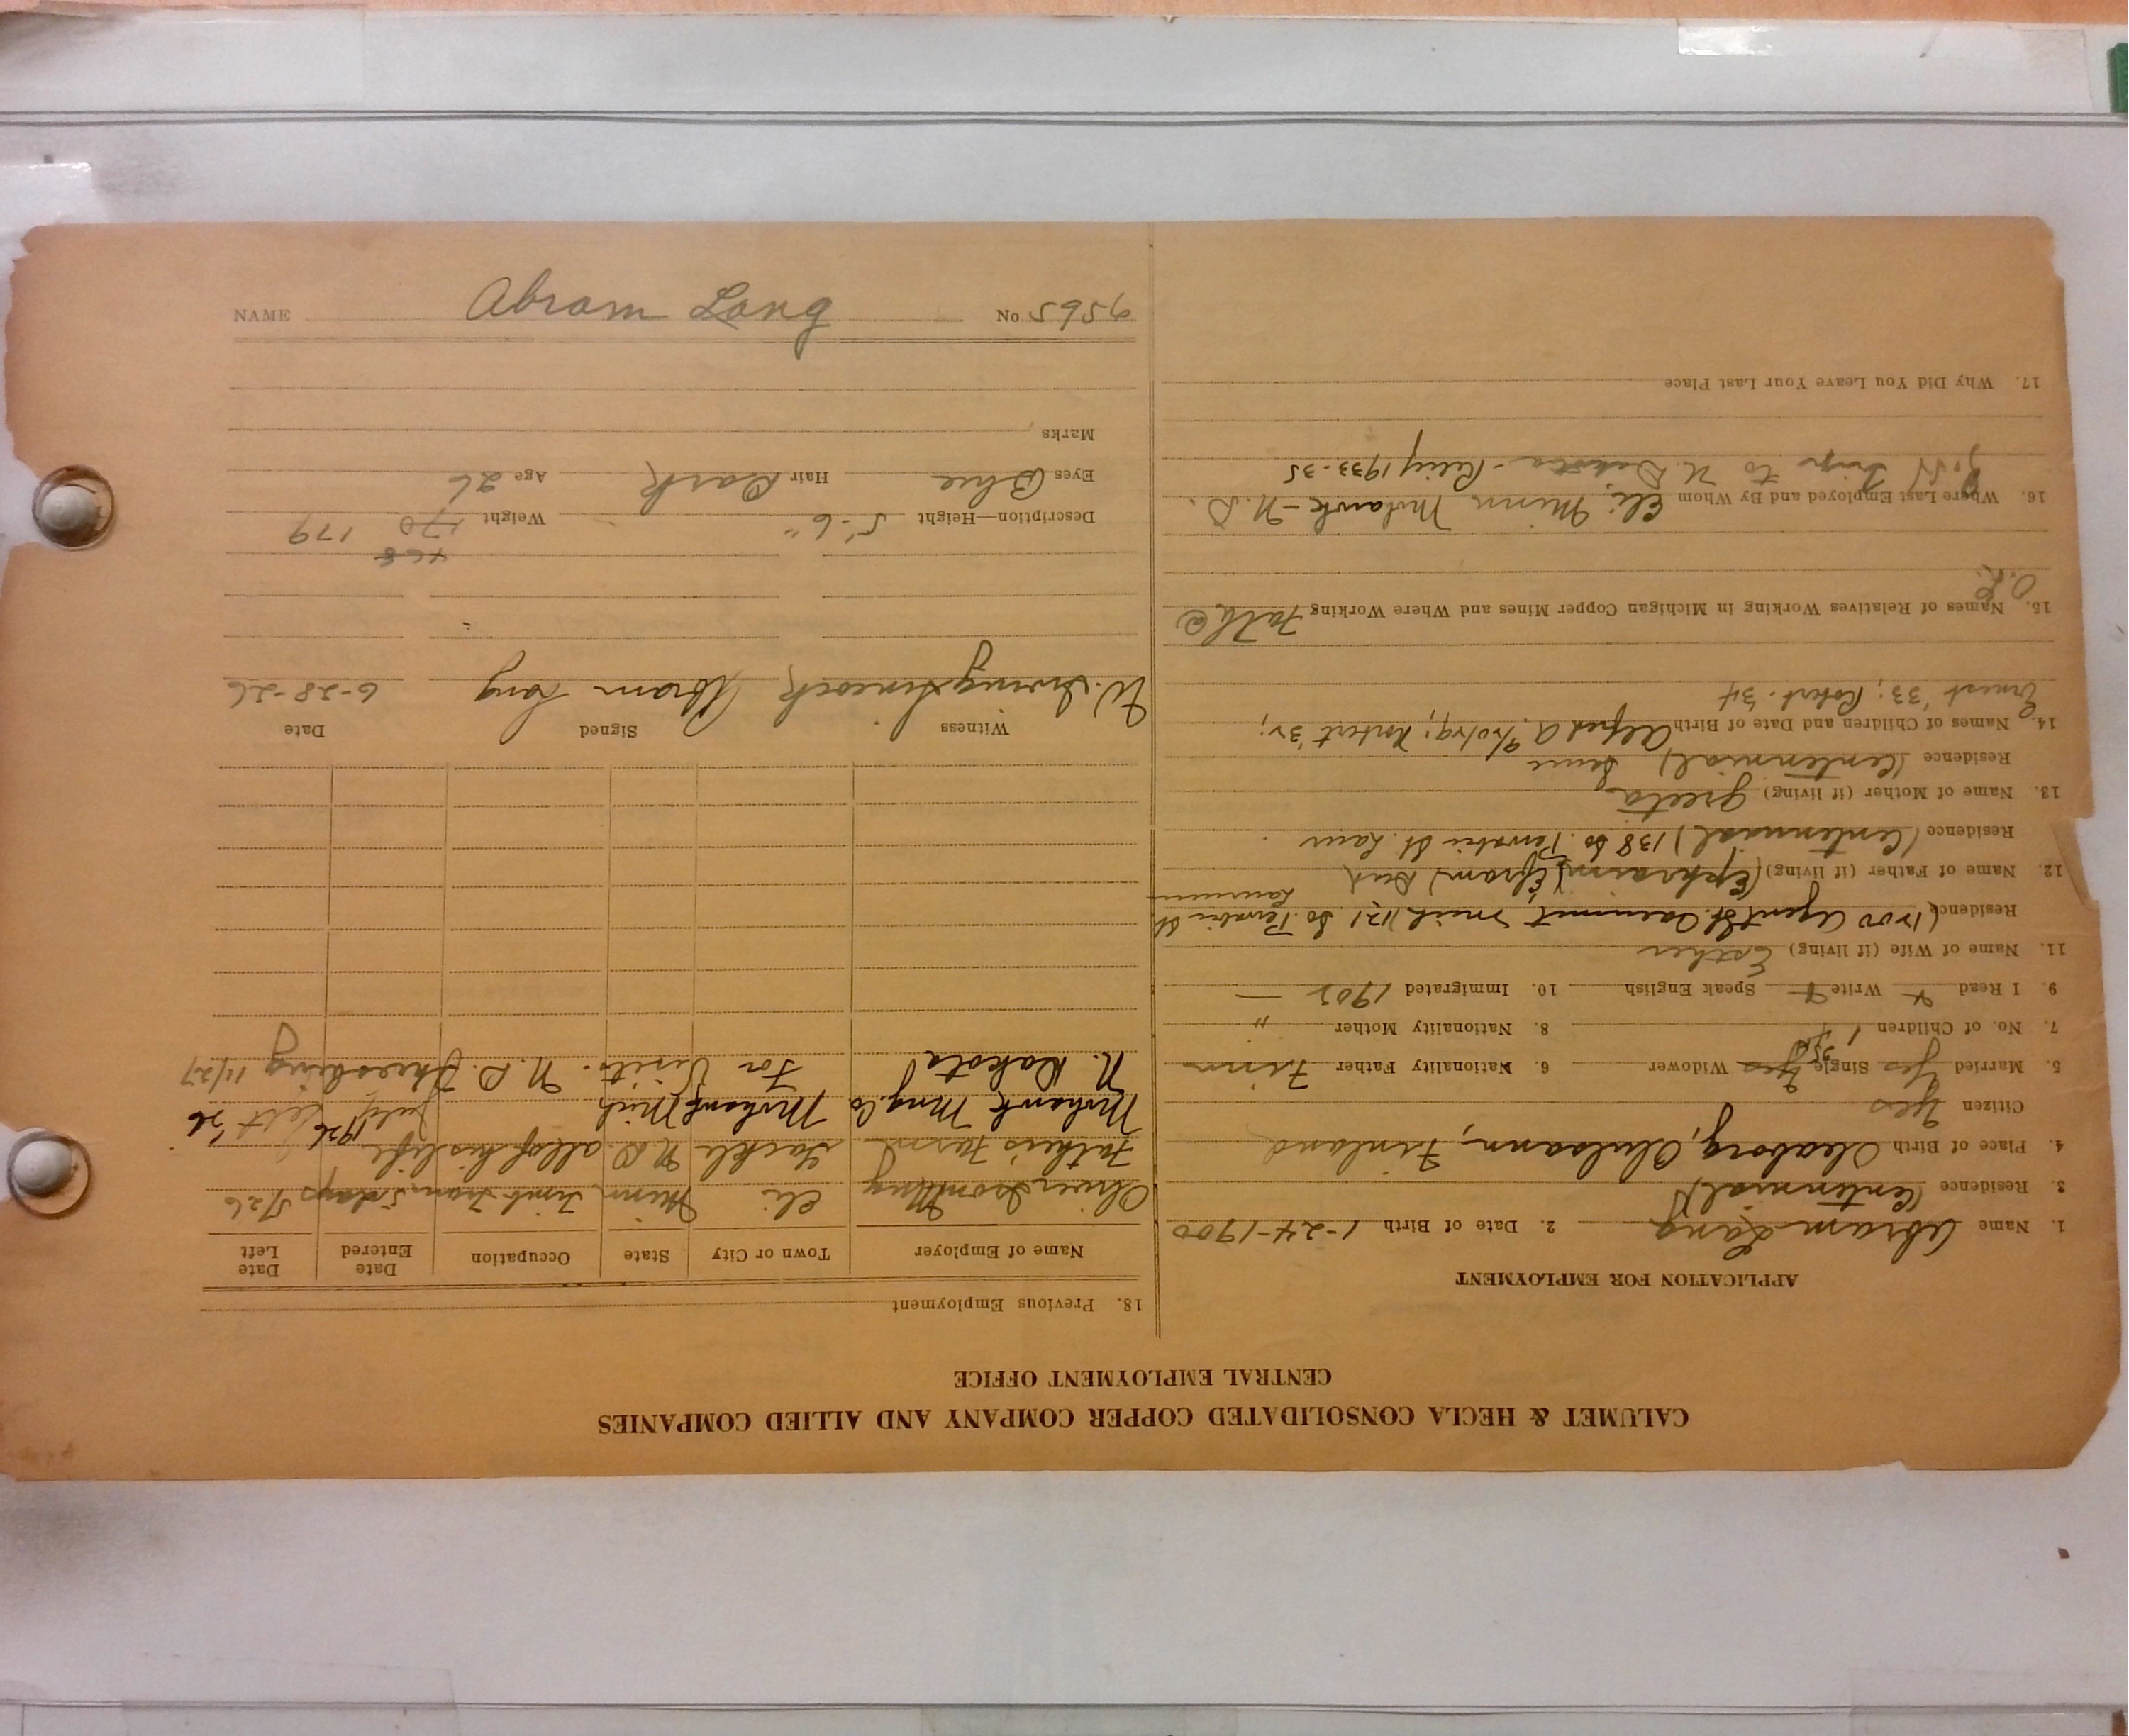 CALUMET & HECLA CONSOLIDATED COPPER COMPANY AND ALLIED COMPANIES
CENTRAL EMPLOYMENT OFFICE
APPLICATION FOR EMPLOYMENT
1. Name Abram Lang 2. Date of Birth 1-24-1900
3. Residence (Centennial)
4. Place of Birth Uleaborg, Finland
Citizen Yes
5. Married Yes Single Yes Widower 6. Nationality Father Finn
7. No. of Children 1 4 8. Nationality Mother "
9. I Read Write Speak English 10. Immigrated 1902 —
11. Name of Wife (if living) Esther
Residence (1200 Agent St. Calumet Mich) 121 So. Pewabic St.
Laurium
12. Name of Father (if living) (Ephraim) (Efram) Dead
Residence (Centennial) 138 So. Pewabic St. Laur
13. Name of Mother (if living) Greeta
Residence (Centennial) Same
14. Names of Children and Date of Birth Alfred A. Norbert '32;
Ernest '33; Robert '34
15. Names of Relatives Working in Michigan Copper Mines and Where Working
O.K.
16. Where Last Employed and By Whom Eli, Minn Mohawk - N.D.
to N. Dakota - 1933-35
17. Why Did You Leave Your Last Place
18. Previous Employment
Name of Employer Town or City State Occupation Date Entered Date Left
Oliver Iron Mng Eli Minn 5 days 5/26
Father's Farm N.D. all of his life
Mohawk Mng. Co Mohawk Mich July 1926 '26
N. Dakota For Visit. N.D. Threshing 11/27
Witness Signed Date
W. Irving Abram Lang 6-28-26
168
Description—Height 5'-6" Weight 170 179
Eyes Blue Hair Dark Age 26
Marks
NAME Abram Lang No 9565